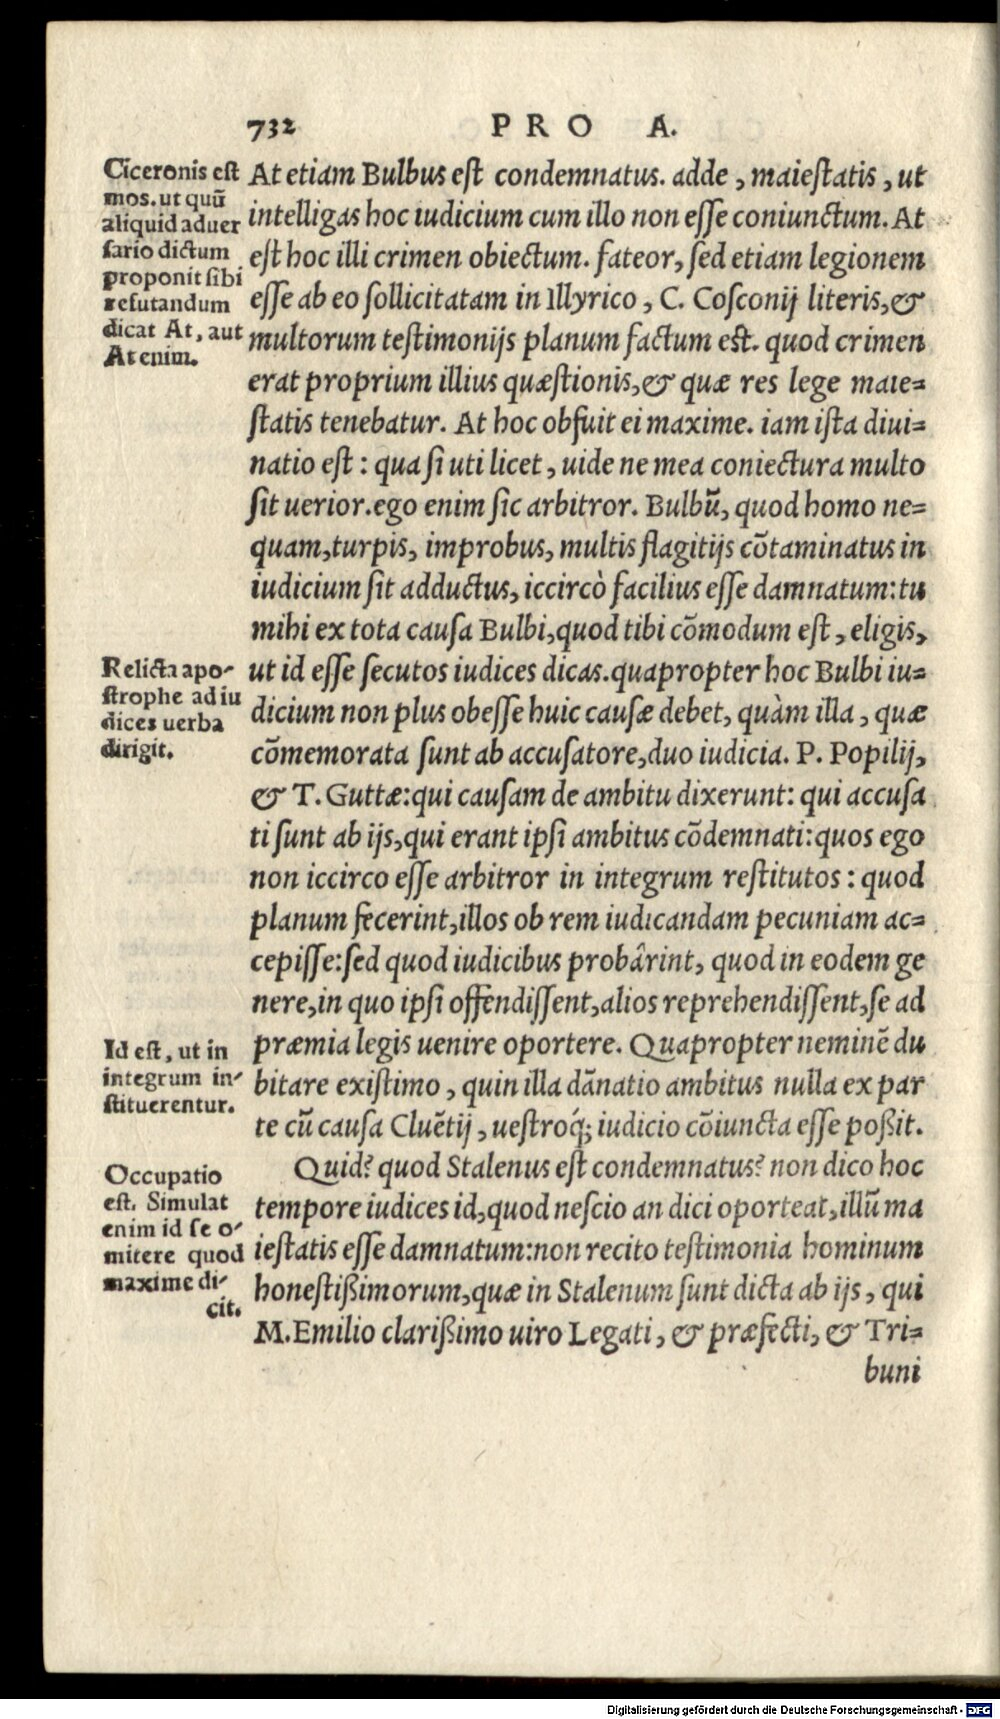 732 PRO A.
Ciceronis est
mos. ut quū
aliquid aduer
sario dictum
proponit sibi
refutandum
dicat At, aut
At enim.
At etiam Bulbus est condemnatus. adde, maiestatis, ut
intelligas hoc iudicium cum illo non esse coniunctum. At
est hoc illi crimen obiectum. fateor, sed etiam legionem
esse ab eo sollicitatam in Illyrico, C. Cosconij literis, &
multorum testimonijs planum factum est. quod crimen
erat proprium illius quæstionis, & quæ res lege maie=
statis tenebatur. At hoc obfuit ei maxime. iam ista diui=
natio est: qua si uti licet, uide ne mea coniectura multo
sit uerior. ego enim sic arbitror. Bulbū, quod homo ne=
quam, turpis, improbus, multis flagitijs cōtaminatus in
iudicium sit adductus, iccircò facilius esse damnatum: tu
mihi ex tota causa Bulbi, quod tibi cōmodum est, eligis,
Relicta apo-
strophe ad iu
dices uerba
dirigit.
ut id esse secutos iudices dicas. quapropter hoc Bulbi iu=
dicium non plus obesse huic causæ debet, quàm illa, quæ
cōmemorata sunt ab accusatore, duo iudicia. P. Popilij,
& T. Guttæ: qui causam de ambitu dixerunt: qui accusa
ti sunt ab ijs, qui erant ipsi ambitus cōdemnati: quos ego
non iccirco esse arbitror in integrum restitutos: quod
planum fecerint, illos ob rem iudicandam pecuniam ac=
cepisse: sed quod iudicibus probârint, quod in eodem ge
nere, in quo ipsi offendissent, alios reprehendissent, se ad
præmia legis uenire oportere. Quapropter neminē du
bitare existimo, quin illa dānatio ambitus nulla ex par
te cū causa Cluētij, uestroq́; iudicio cōiuncta esse poßit.
Id est, ut in
integrum in-
stituerentur.
Quid? quod Stalenus est condemnatus? non dico hoc
tempore iudices id, quod nescio an dici oporteat, illū ma
iestatis esse damnatum: non recito testimonia hominum
honestißimorum, quæ in Stalenum sunt dicta ab ijs, qui
M. Emilio clarißimo uiro Legati, & præfecti, & Tri=
Occupatio
est. Simulat
enim id se o-
mitere quod
maxime di-
cit.
buni
Digitalisierung gefördert durch die Deutsche Forschungsgemeinschaft - DFG